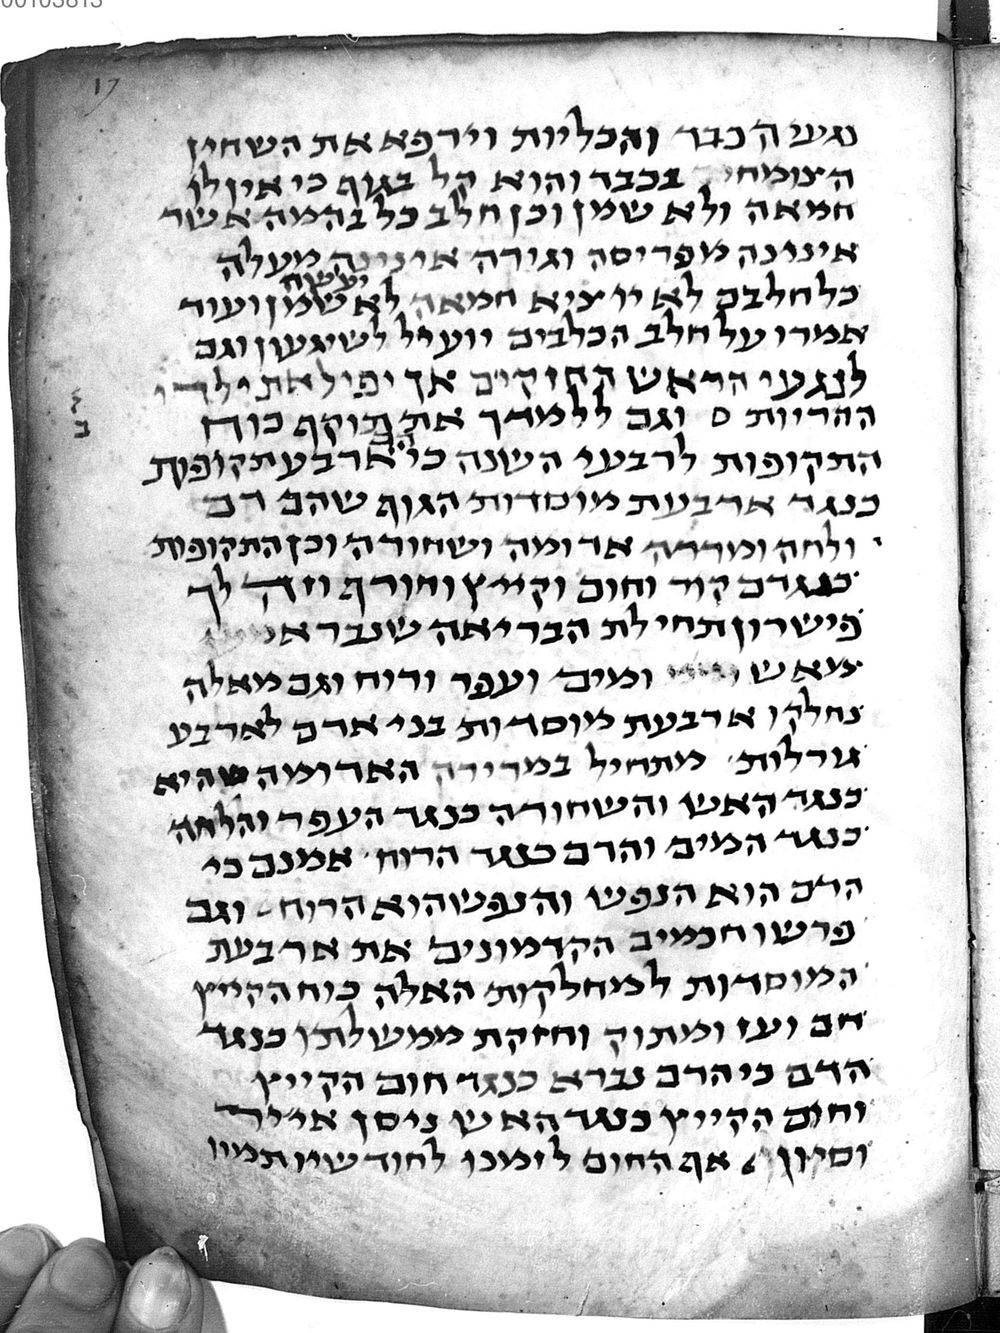 00103813
17
נגעי הכבד והכליות וירפא את השחין
הצומח בכבד והוא קל בגוף כי אין לו
חמאה ולא שמן וכן חלב כל בהמה אשר
איננה מפריסה וגירה איננה מעלה
יעשה
כל חלבם לא יוציא חמאה לא שמן ועוד
אמרו על חלב הכלבים יועיל לשיגעון וגם
לנגעי הראש החזקים אך יפיל את ילדי
ההריות ס וגם ללמדך את תוקף כוח
ב
התקופות לרבעי השנה כי ארבע תקופות
כנגד ארבעת מוסדות הגוף שהם דם
ולחה ומררה אדומה ושחורה וכן התקופות
כנגדם קור וחום וקייץ וחורף וזה לך
פישרון תחילת הבריאה שנברא
מאש ומים ועפר ורוח וגם מאלה
נחלקו ארבעת מוסדות בני אדם לארבע
גורלות מתחיל במרירה האדומה שהיא
כנגד האש והשחורה כנגד העפר והלחה
כנגד המים והדם כנגד הרוח אמנם כי
הדם הוא הנפש והנפש הוא הרוח וגם
פרשו חכמים הקדמונים את ארבעת
המוסדות למחלקות האלה כוח הקייץ
חם ועז ומתוק וחזקת ממשלתו כנגד
הדם כי הדם נברא כנגד חום הקייץ
וחום הקייץ כנגד האש ניסן אייר
וסיוון אף החום לזמנו לחודשיו תמיו